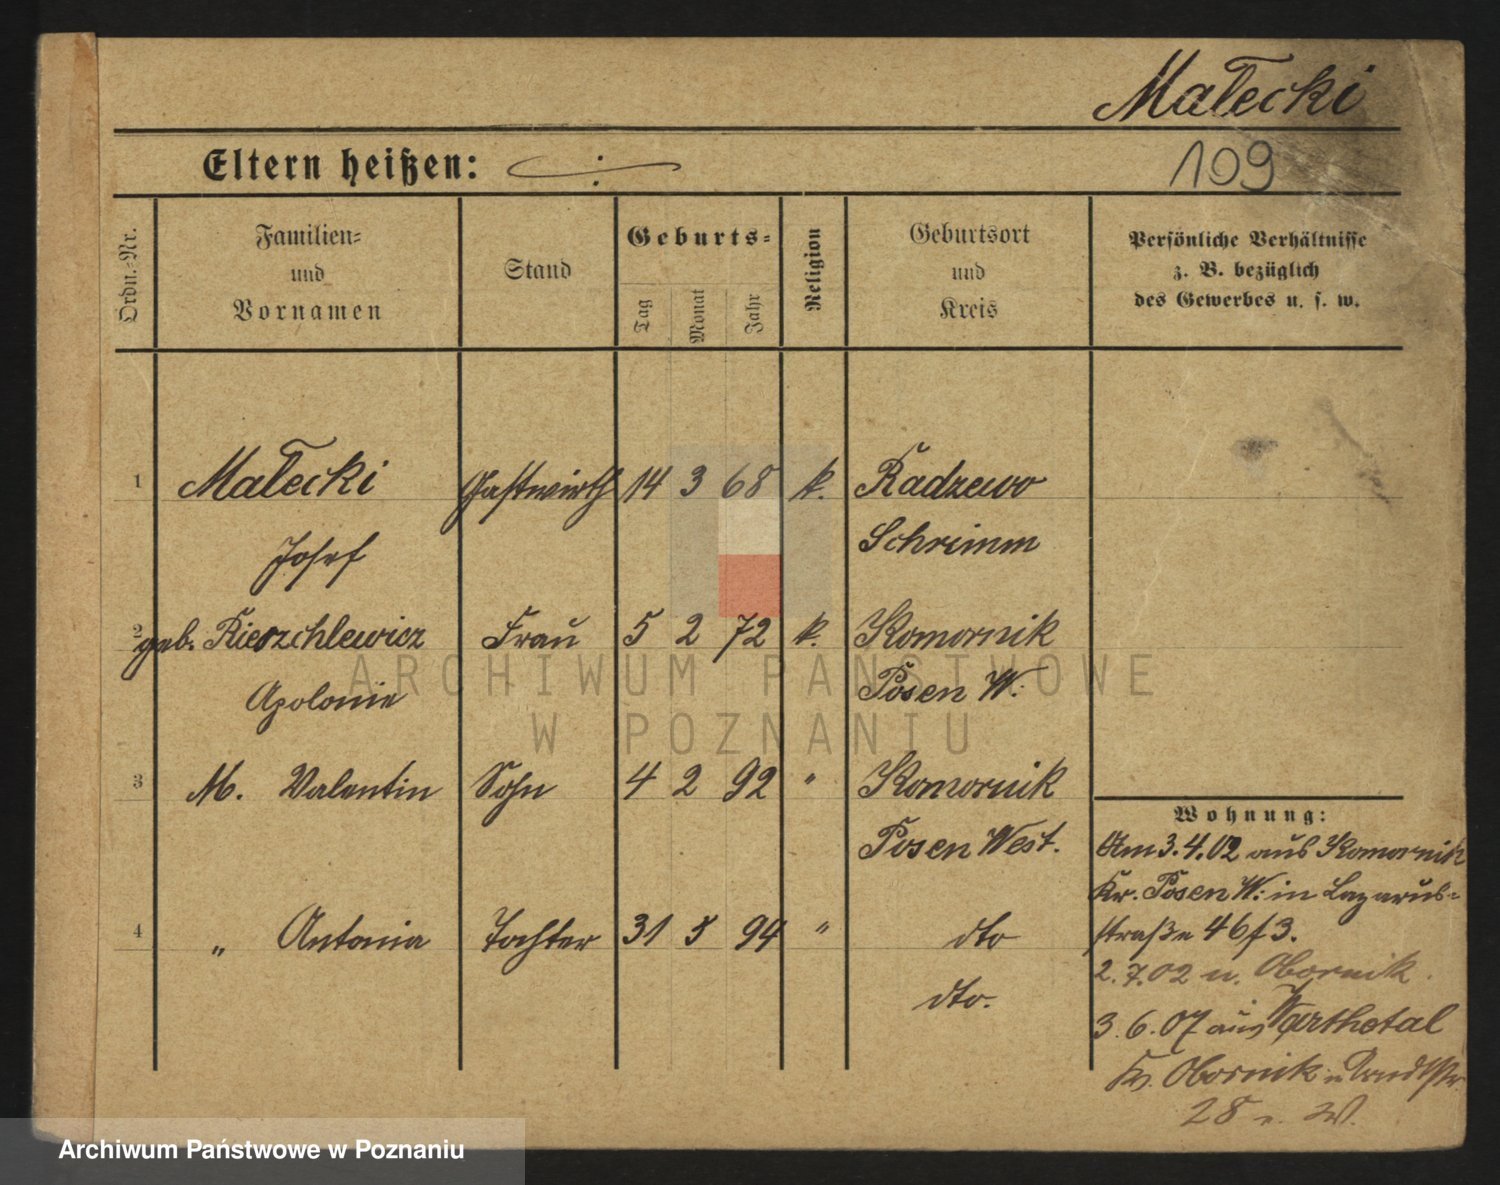 Małecki
Eltern heißen:
109
Ordn.-Nr.
Familien-
und
Vornamen
Stand
Geburts-
Tag
Monat
Jahr
Religion
Geburtsort
und
Kreis
Persönliche Verhältnisse
z. B. bezüglich
des Gewerbes u. s. w.
1 Małecki Gastwirth 14 3 68 k. Radzewo
Josef Schrimm
2 geb. Frau 5 2 72 k. Komornik
Apolonie Posen W.
3 M. Valentin Sohn 4 2 92 " Komornik
Posen West.
4 " Antonia Tochter 31 5 94 " dto
dto.
Wohnung:
Am 3.4.02 aus Komornik
Kr. Posen W. in Lazarus-
straße 46 f 3.
2.7.02 n. Obornik.
3.6.07 aus Warthetal
Kr. Obornik
28
ARCHIWUM PAŃSTWOWE
W POZNANIU
Archiwum Państwowe w Poznaniu